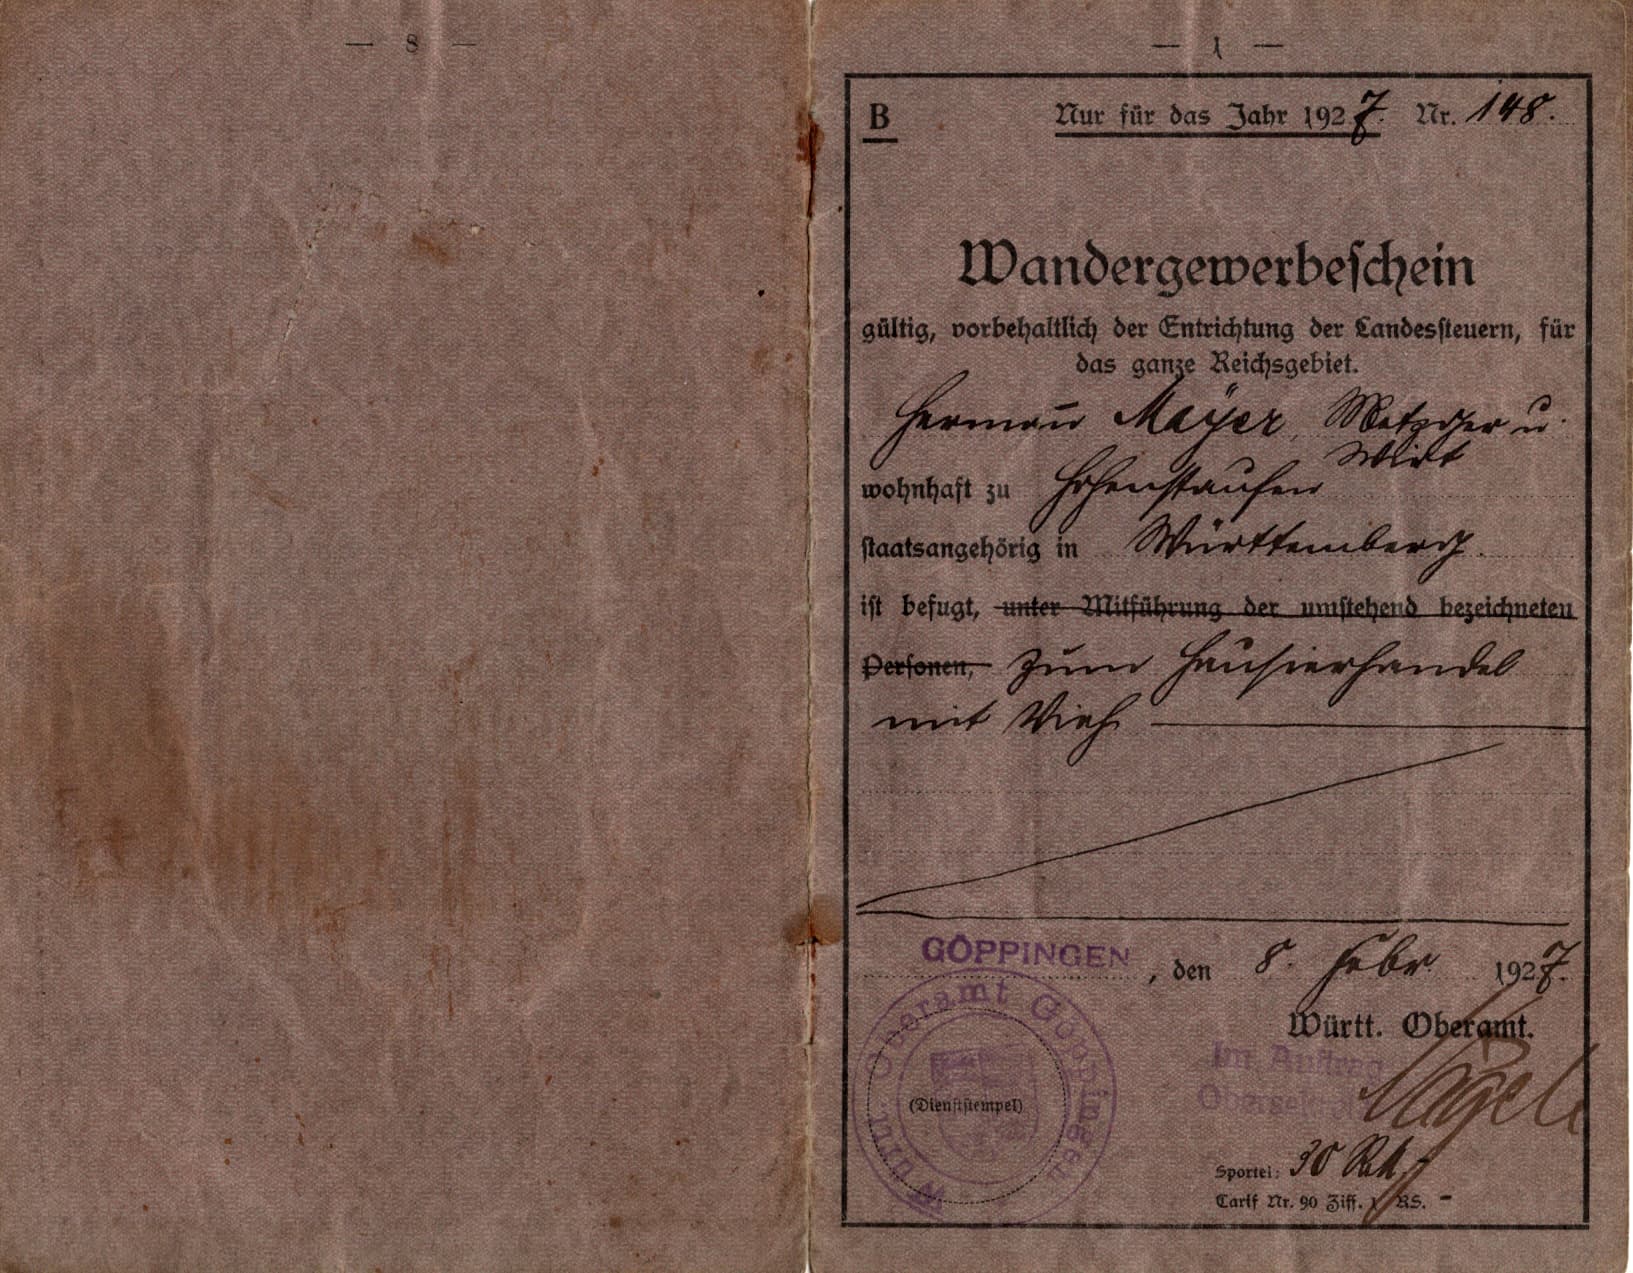 — 8 —
— 1 —
B Nur für das Jahr 1927. Nr. 148.
Wandergewerbeschein
gültig, vorbehaltlich der Entrichtung der Landessteuern, für
das ganze Reichsgebiet.
Hermann Mayer, Metzger u.
Wirt
wohnhaft zu Hohenstaufen
staatsangehörig in Württemberg.
ist befugt, unter Mitführung der umstehend bezeichneten
Personen, zum Hausierhandel
mit Vieh
GÖPPINGEN, den 8. Febr. 1927.
Württ. Oberamt.
Württ. Oberamt Göppingen
Im Auftrag
(Dienststempel)
Sportel: 30 RM.
Tarif Nr. 90 Ziff. 1 RS. -